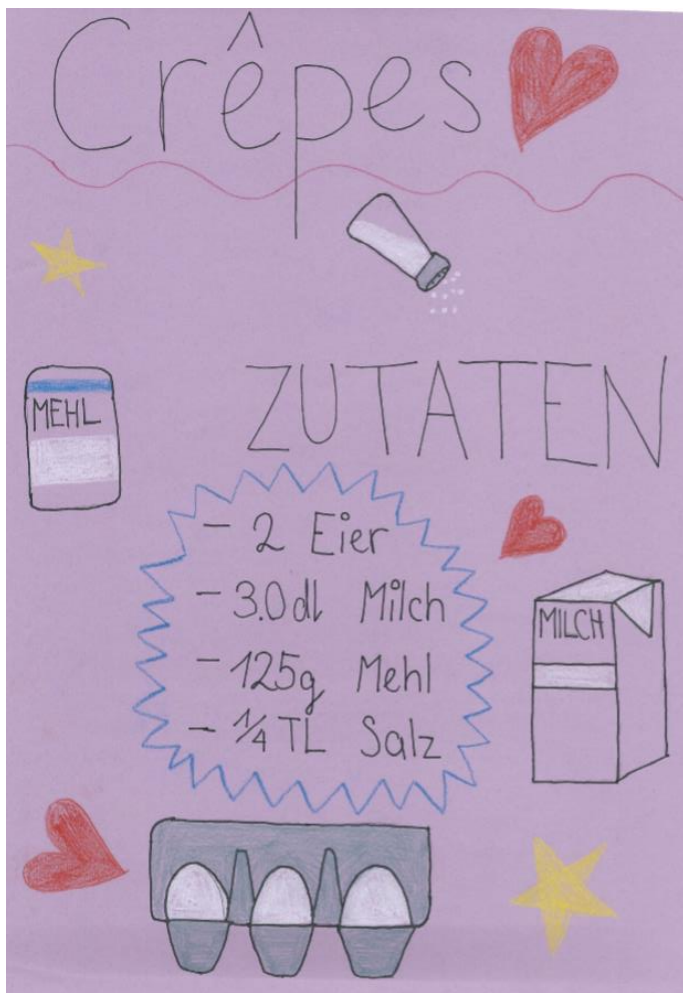 Crêpes
MEHL
ZUTATEN
- 2 Eier
- 3.0dl Milch
- 125g Mehl
- 1/4 TL Salz
MILCH